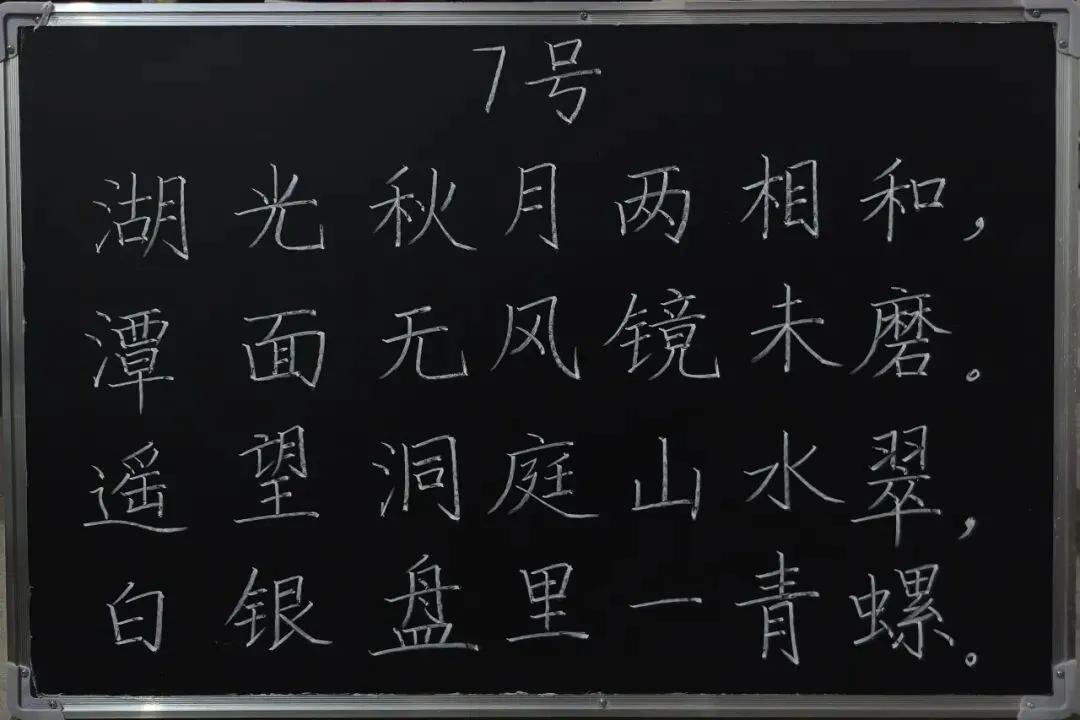 7号
湖光秋月两相和，
潭面无风镜未磨。
遥望洞庭山水翠，
白银盘里一青螺。